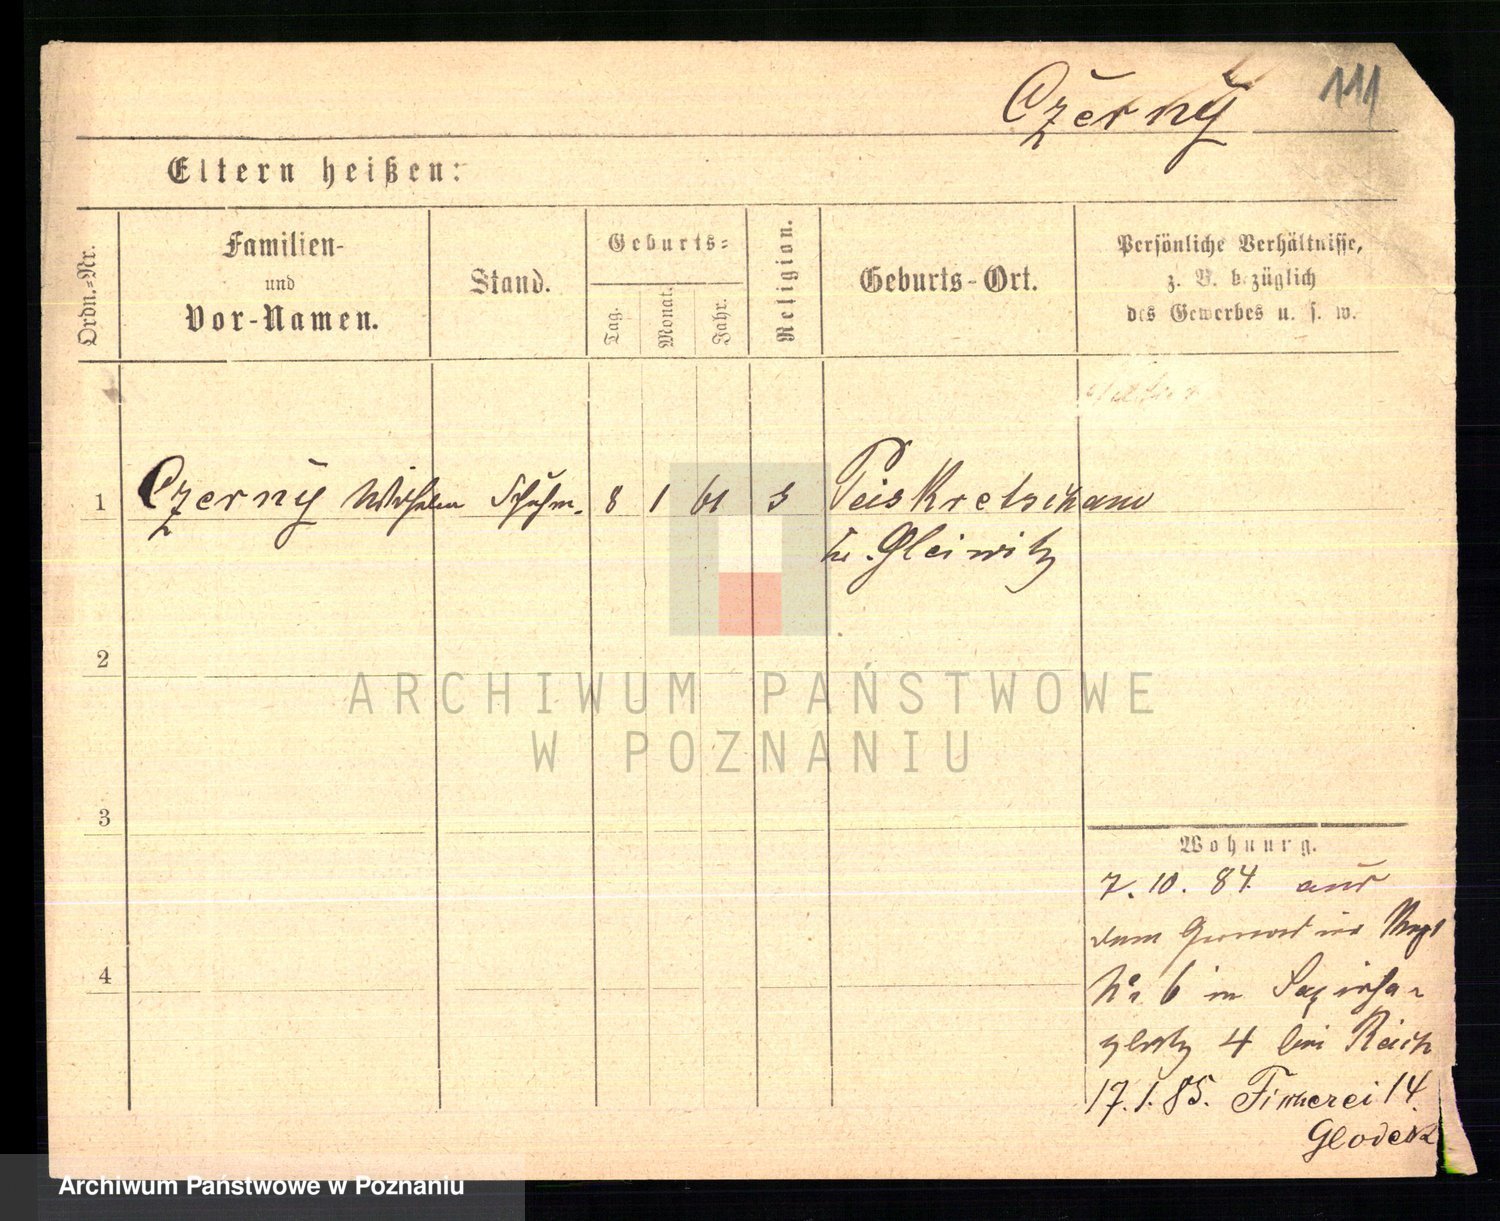 Czerny
111
Eltern heißen:
Ordn.-Nr.
Familien-
und
Vor-Namen.
Stand.
Geburts-
Tag.
Monat.
Jahr.
Religion.
Geburts-Ort.
Persönliche Verhältnisse,
z. B. bezüglich
des Gewerbes u. s. w.
1 Czerny Wilhelm Schuhm. 8 1 61 Peiskretscham
Kr. Gleiwitz
2
3
4
Wohnung.
7. 10. 84. aus
dem
No 6 in Sapieha-
platz 4 bei Reich
17. 1. 85. Fischerei 14.
ARCHIWUM PAŃSTWOWE
W POZNANIU
Archiwum Państwowe w Poznaniu